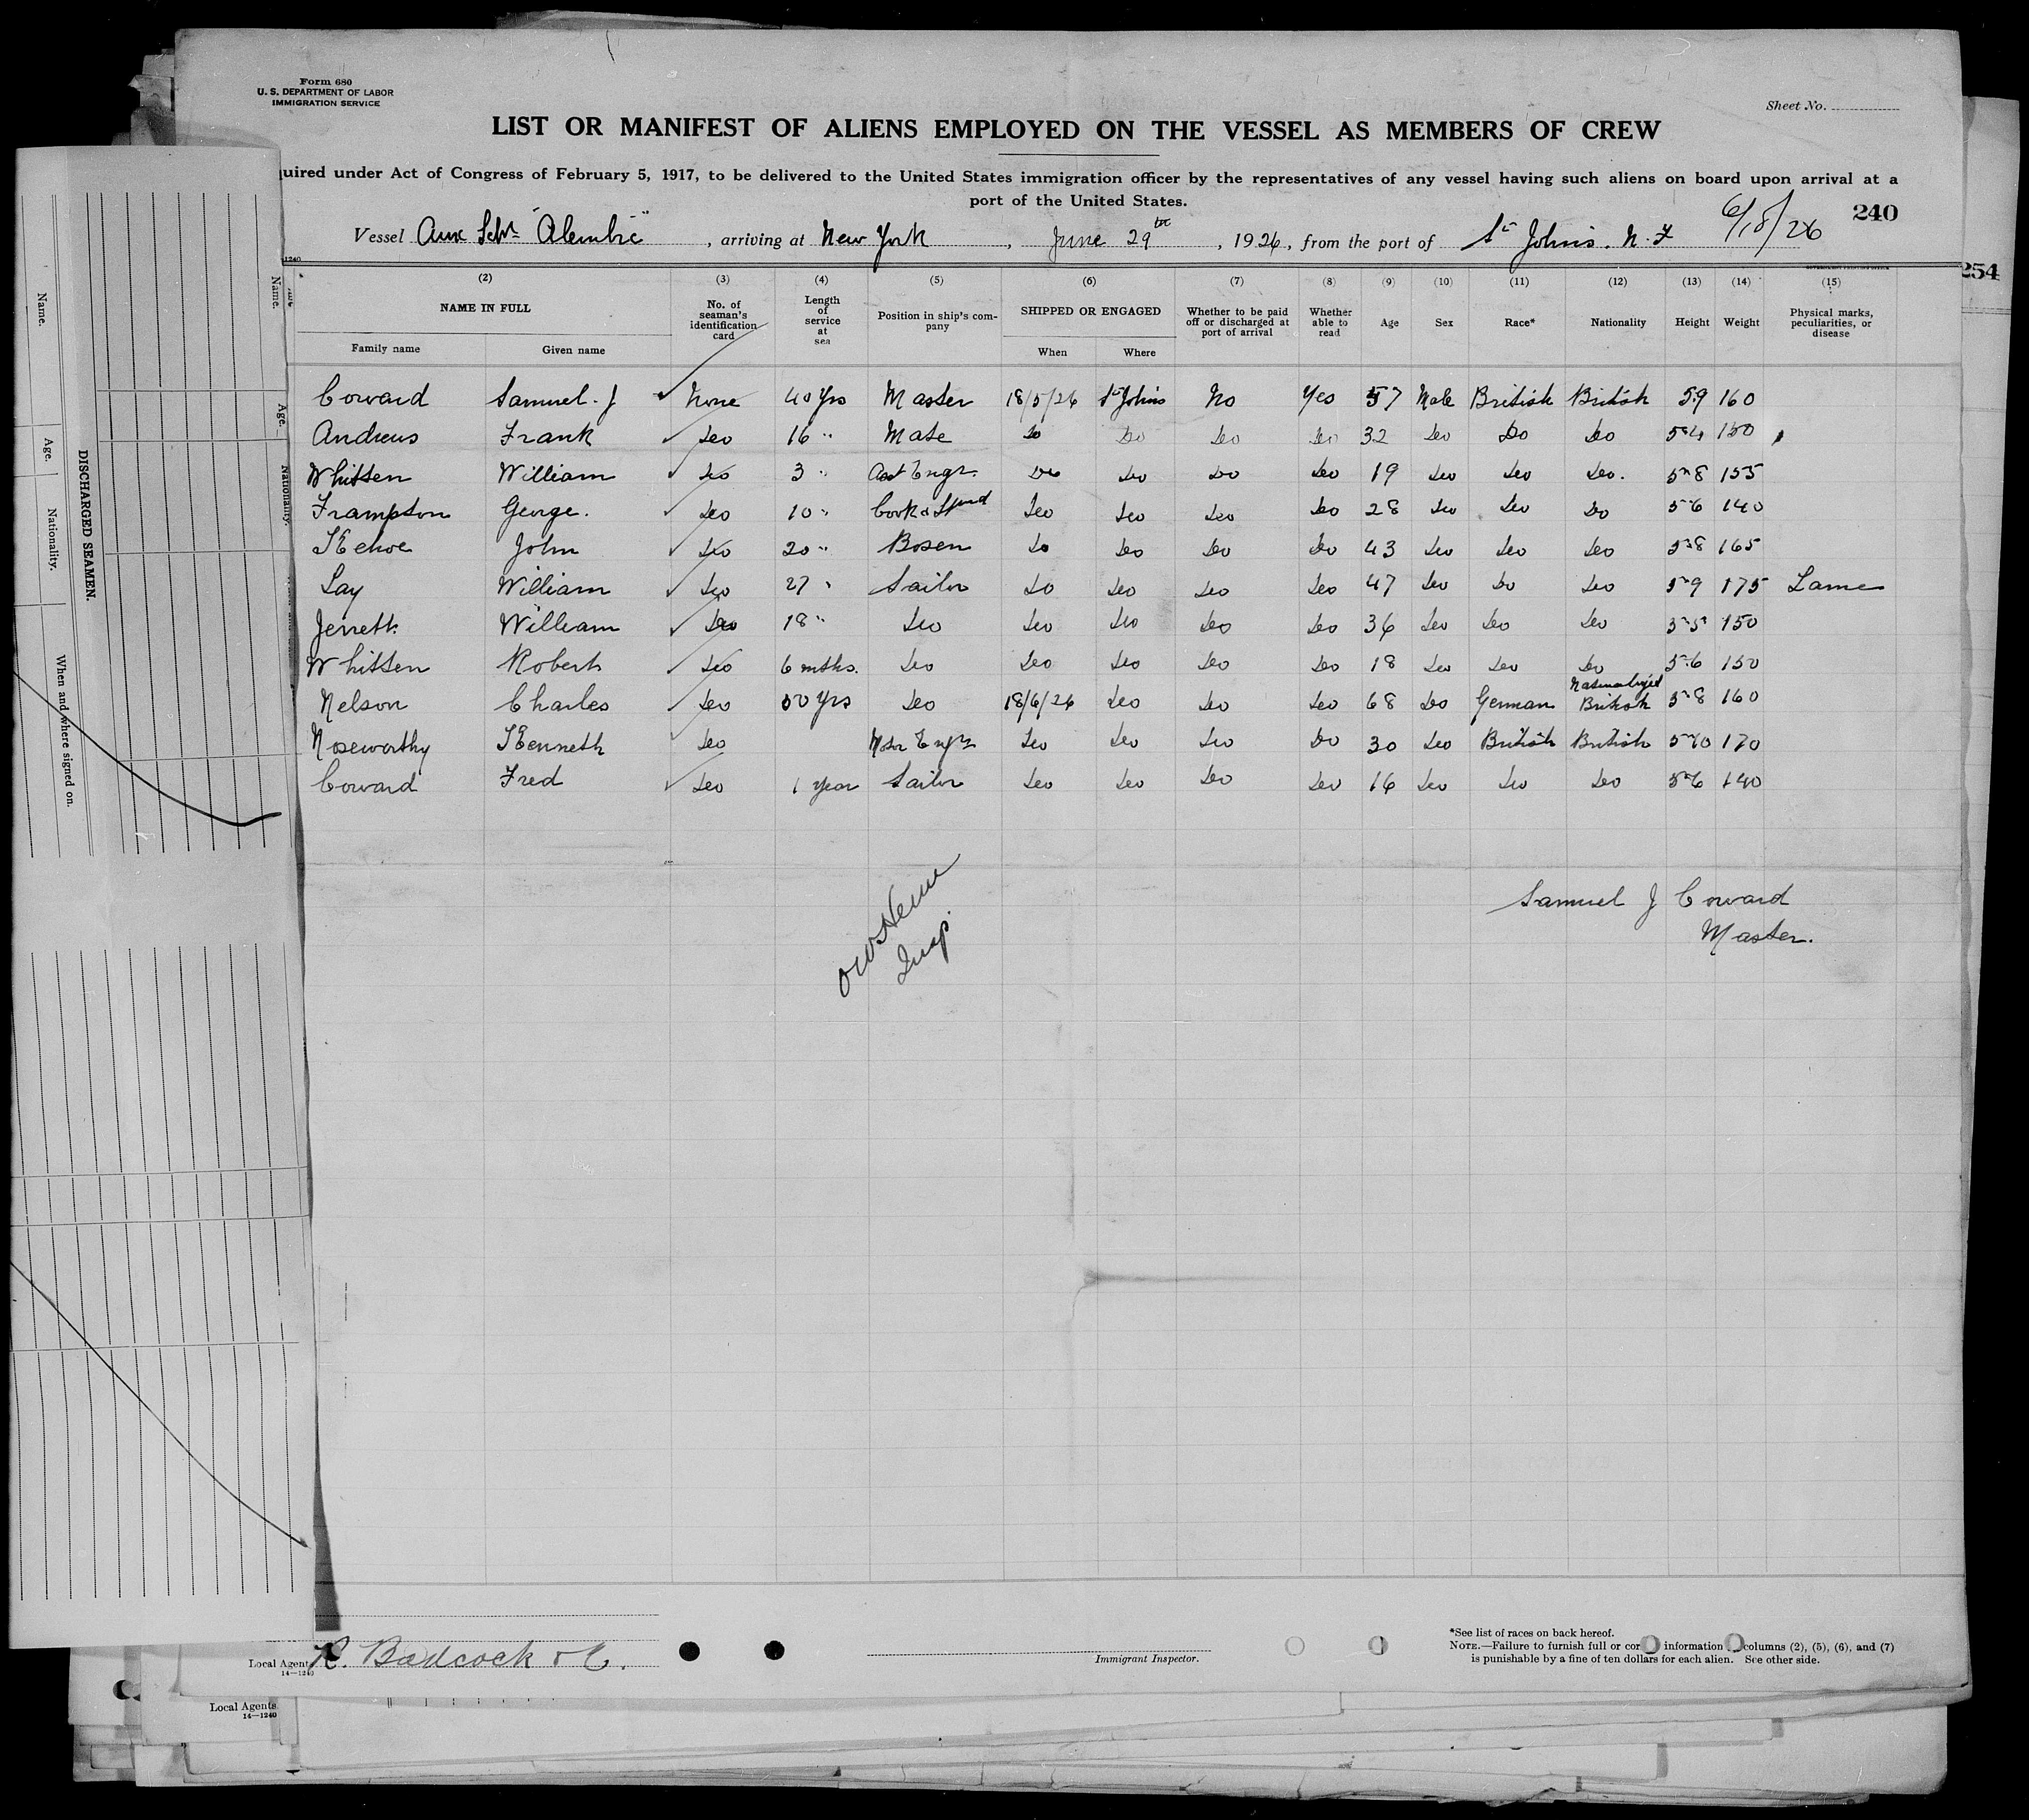 Form 680
U. S. DEPARTMENT OF LABOR
IMMIGRATION SERVICE
Sheet No.
LIST OR MANIFEST OF ALIENS EMPLOYED ON THE VESSEL AS MEMBERS OF CREW
uired under Act of Congress of February 5, 1917, to be delivered to the United States immigration officer by the representatives of any vessel having such aliens on board upon arrival at a
port of the United States.
6/18/26
240
Vessel Aux Schr "Alembic", arriving at New York, June 29th, 1926, from the port of St Johns. N. F
254
(2) (3) (4) (5) (6) (7) (8) (9) (10) (11) (12) (13) (14) (15)
NAME IN FULL No. of seaman's identification card Length of service at sea Position in ship's company SHIPPED OR ENGAGED Whether to be paid off or discharged at port of arrival Whether able to read Age Sex Race* Nationality Height Weight Physical marks, peculiarities, or disease
Family name Given name When Where
Coward Samuel. J None 40 Yrs Master 18/5/26 St Johns No Yes 57 Male British British 5.9 160
Andrews Frank Do 16 " Mate Do Do Do Do 32 Do Do Do 5-4 150
Whitten William Do 3 " Asst Engr. Do Do Do Do 19 Do Do Do. 5-8 155
Frampton George. Do 10 " Cook & Stwd Do Do Do Do 28 Do Do Do 5-6 140
Kehoe John Do 20 " Bosen Do Do Do Do 43 Do Do Do 5-8 165
Lay William Do 27 " Sailor Do Do Do Do 47 Do Do Do 5-9 175 Lame
Jerrett William Do 18 " Do Do Do Do Do 36 Do Do Do 5-5 150
Whitten Robert Do 6 mths. Do Do Do Do Do 18 Do Do Do 5-6 150
Nelson Charles Do 50 Yrs Do 18/6/26 Do Do Do 68 Do German Naturalized British 5-8 160
Noseworthy Kenneth Do Motor Engr Do Do Do Do 30 Do British British 5-10 170
Coward Fred Do 1 year Sailor Do Do Do Do 16 Do Do Do 5-6 140
Insp.
Samuel J Coward
Master.
DISCHARGED SEAMEN.
Name. Age. Nationality. When and where signed on.
Name. Age. Nationality.
Local Agents R. Badcock & C.
14—1240
Immigrant Inspector.
*See list of races on back hereof.
NOTE.—Failure to furnish full or cor information columns (2), (5), (6), and (7)
is punishable by a fine of ten dollars for each alien. See other side.
Local Agents
14—1240